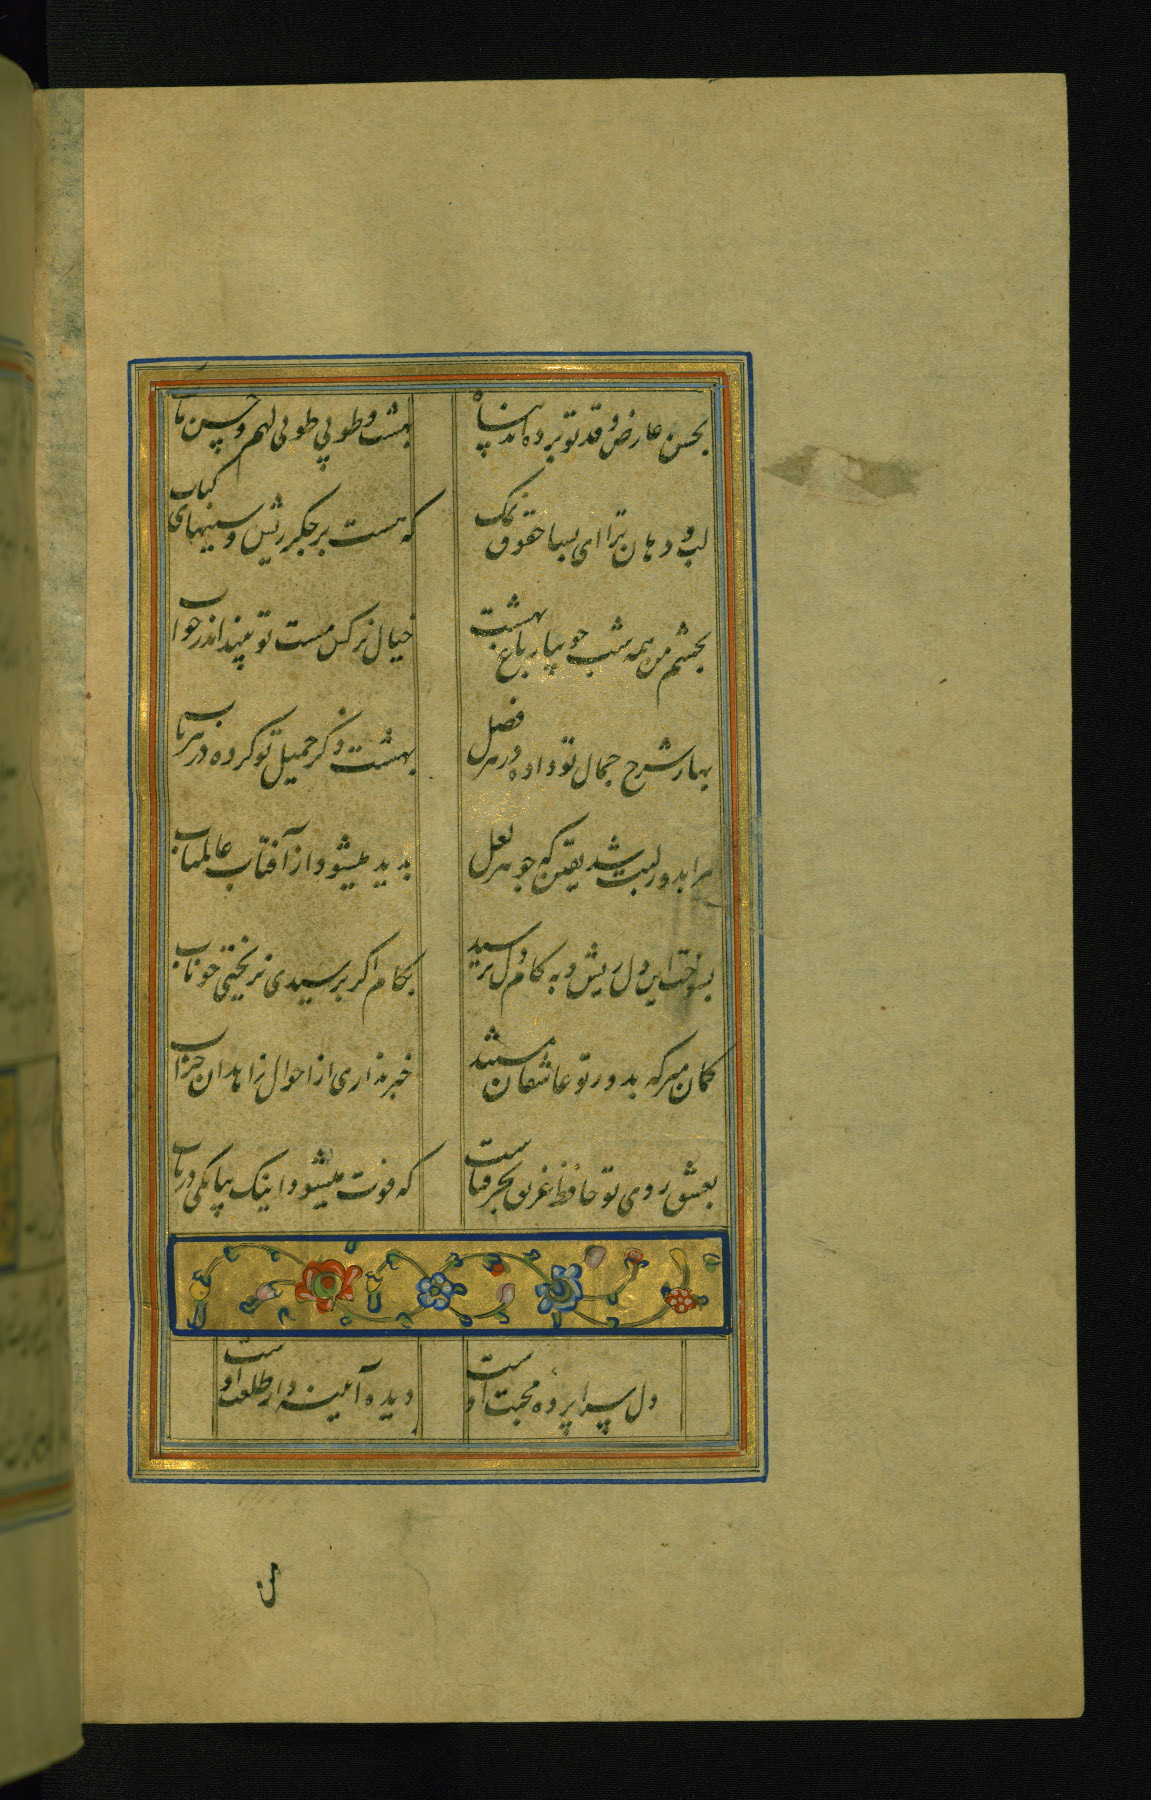 بحسن عارض و قد تو برده‌اند پناه بهشت و طوبی طوبی لهم و حسن مآب
لب و دهان ترا ای بسا حقوق نمک که هست بر جگر ریش و سینهای کباب
بچشم من همه شب جویبار باغ بهشت خیال نرکس مست تو بیند اندر خواب
بهار شرح جمال تو داده در هر فصل بهشت ذکر جمیل تو کرده در هر باب
مرا بدور لبت شد یقین که جوهر لعل بدید میشود از آفتاب عالمتاب
بسوخت این دل ریش و به کام دل نرسید بکام اکر برسیدی نریختی خوناب
کمان مبر که بدور تو عاشقان مستند خبر نداری از احوال زاهدان خراب
بعشق روی تو حافظ غریق بحر فناست که فوت میشود اینک بیا یکی دریاب
دل سراپرده محبت اوست دیده آئینه دار طلعت اوست